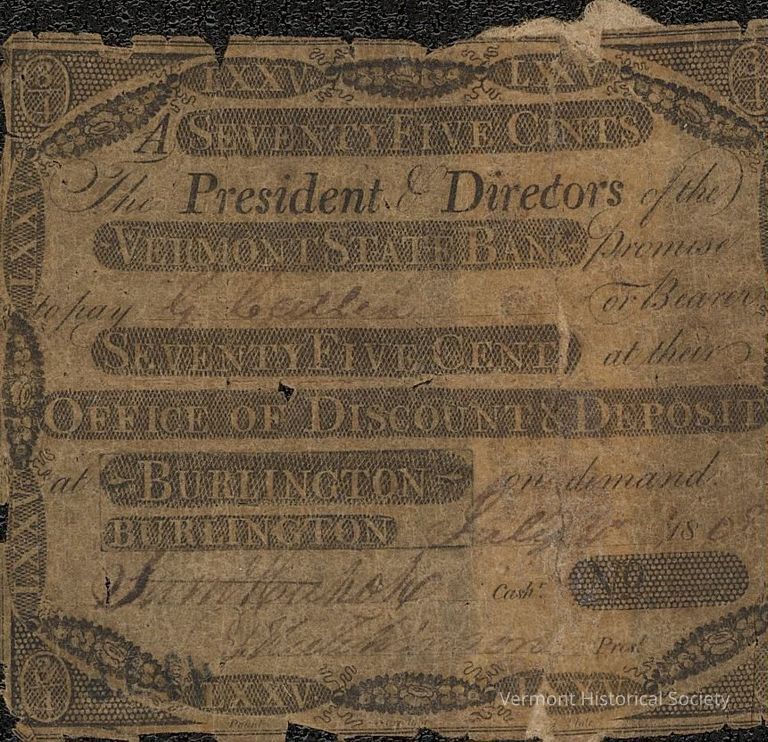 3/4 LXXV LXXV 3/4
A SEVENTY FIVE CENTS
The President & Directors of the
VERMONT STATE BANK Promise
to pay G Catlin or Bearer
SEVENTY FIVE CENT at their
OFFICE OF DISCOUNT & DEPOSIT
at BURLINGTON on demand.
BURLINGTON July 1808
Cash.r NO
Hutchinson Pres.t
3/4 LXXV LXXV
LXXV
LXXV
Vermont Historical Society